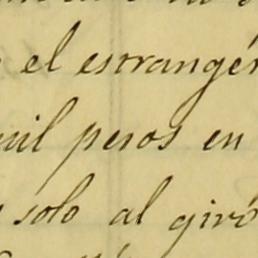 el estrangér
mil pesos en
solo al giró